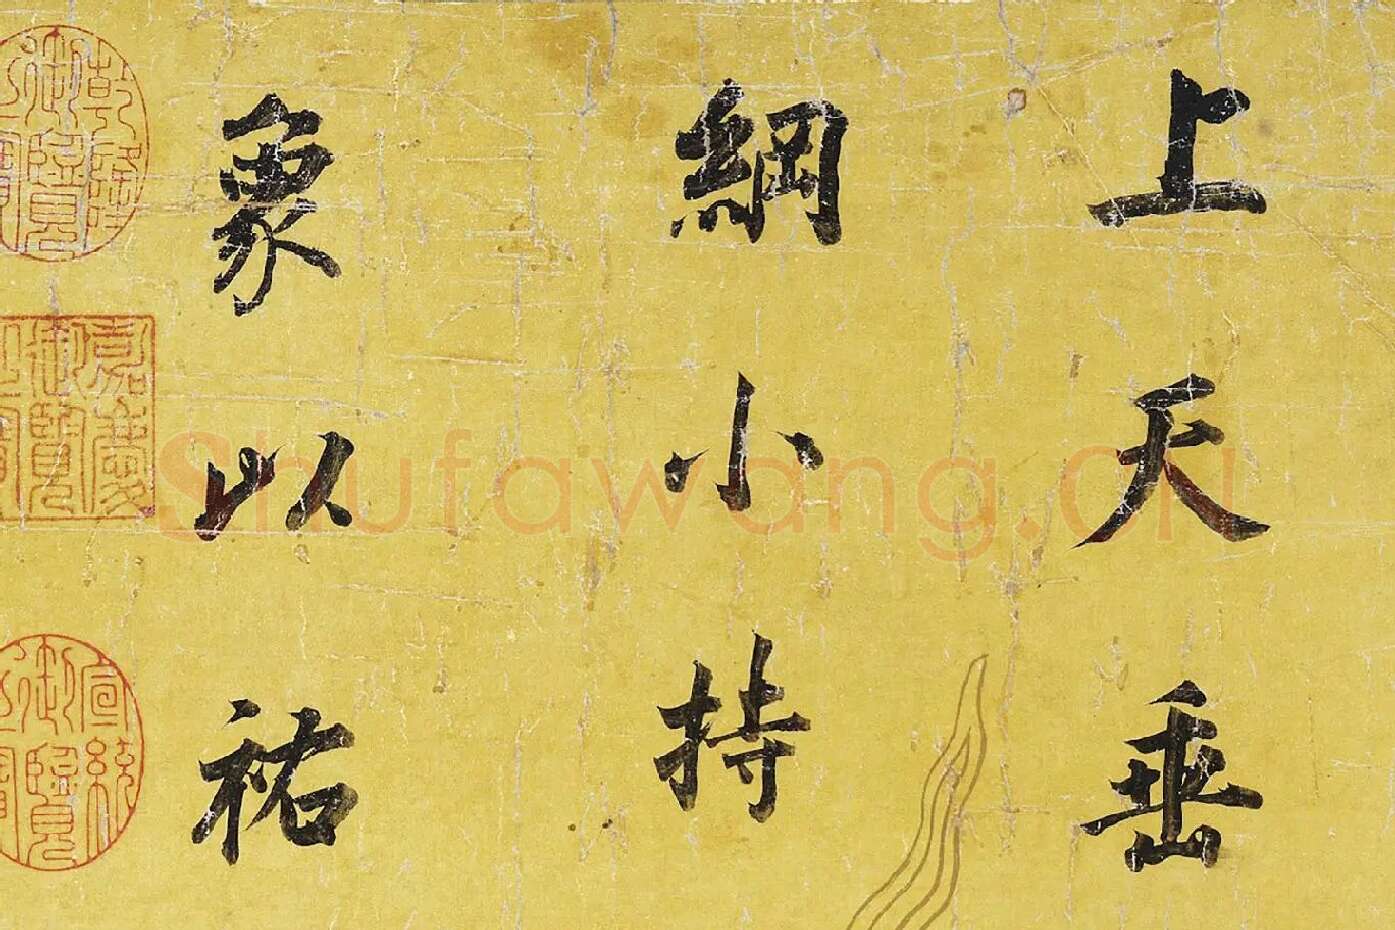 上天垂
綱小持
象以祐
乾隆御覽之寶
嘉慶御覽之寶
宣統御覽之寶
Shufawang.CN